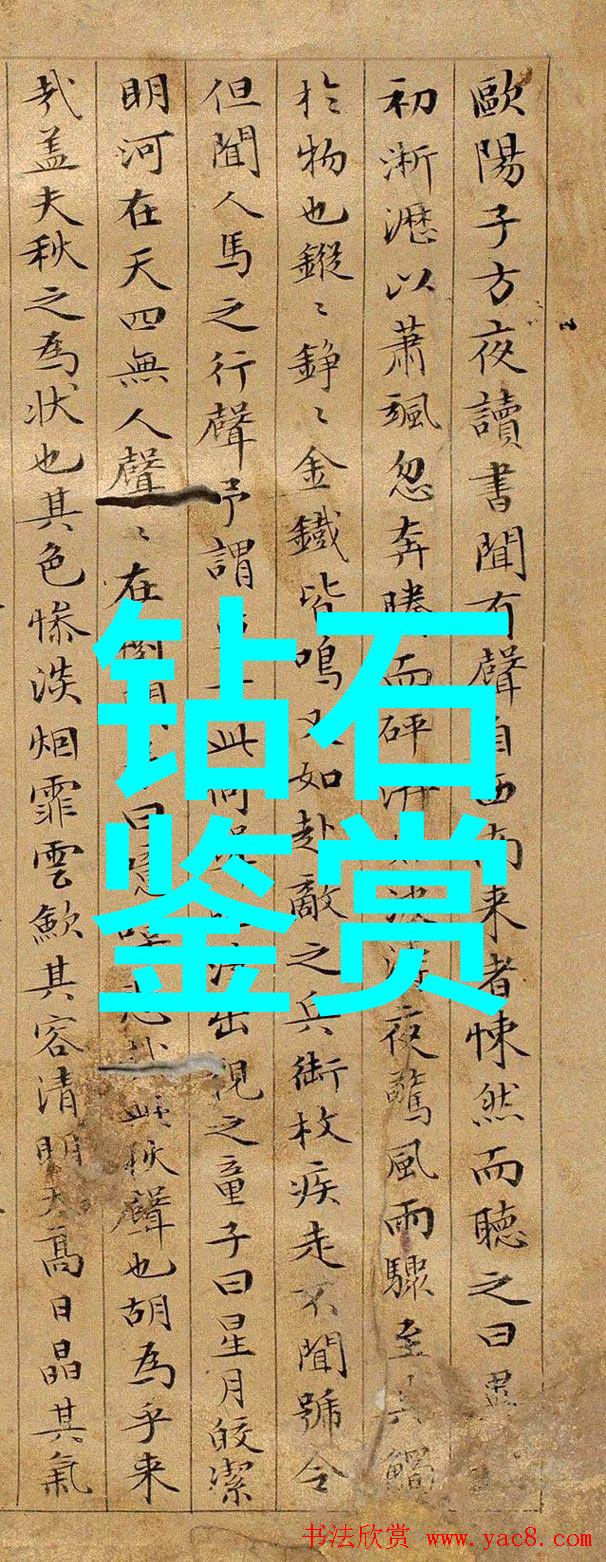 歐陽子方夜讀書聞有聲自西南来者悚然而聽之曰異
初淅瀝以蕭颯忽奔騰而砰湃如波濤夜驚風雨驟至其觸
扵物也鏦〻錚〻金鐵皆鳴又如赴敵之兵銜枚疾走不聞號令
但聞人馬之行聲予謂此何聲出視之童子曰星月皎潔
明河在天四無人聲〻在樹間予曰噫嘻悲此秋聲也胡為乎来
㢤盖夫秋之為状也其色惨淡烟霏雲歛其容清明天高日晶其氣
钻石
鉴赏
书法欣赏 www.yac8.com